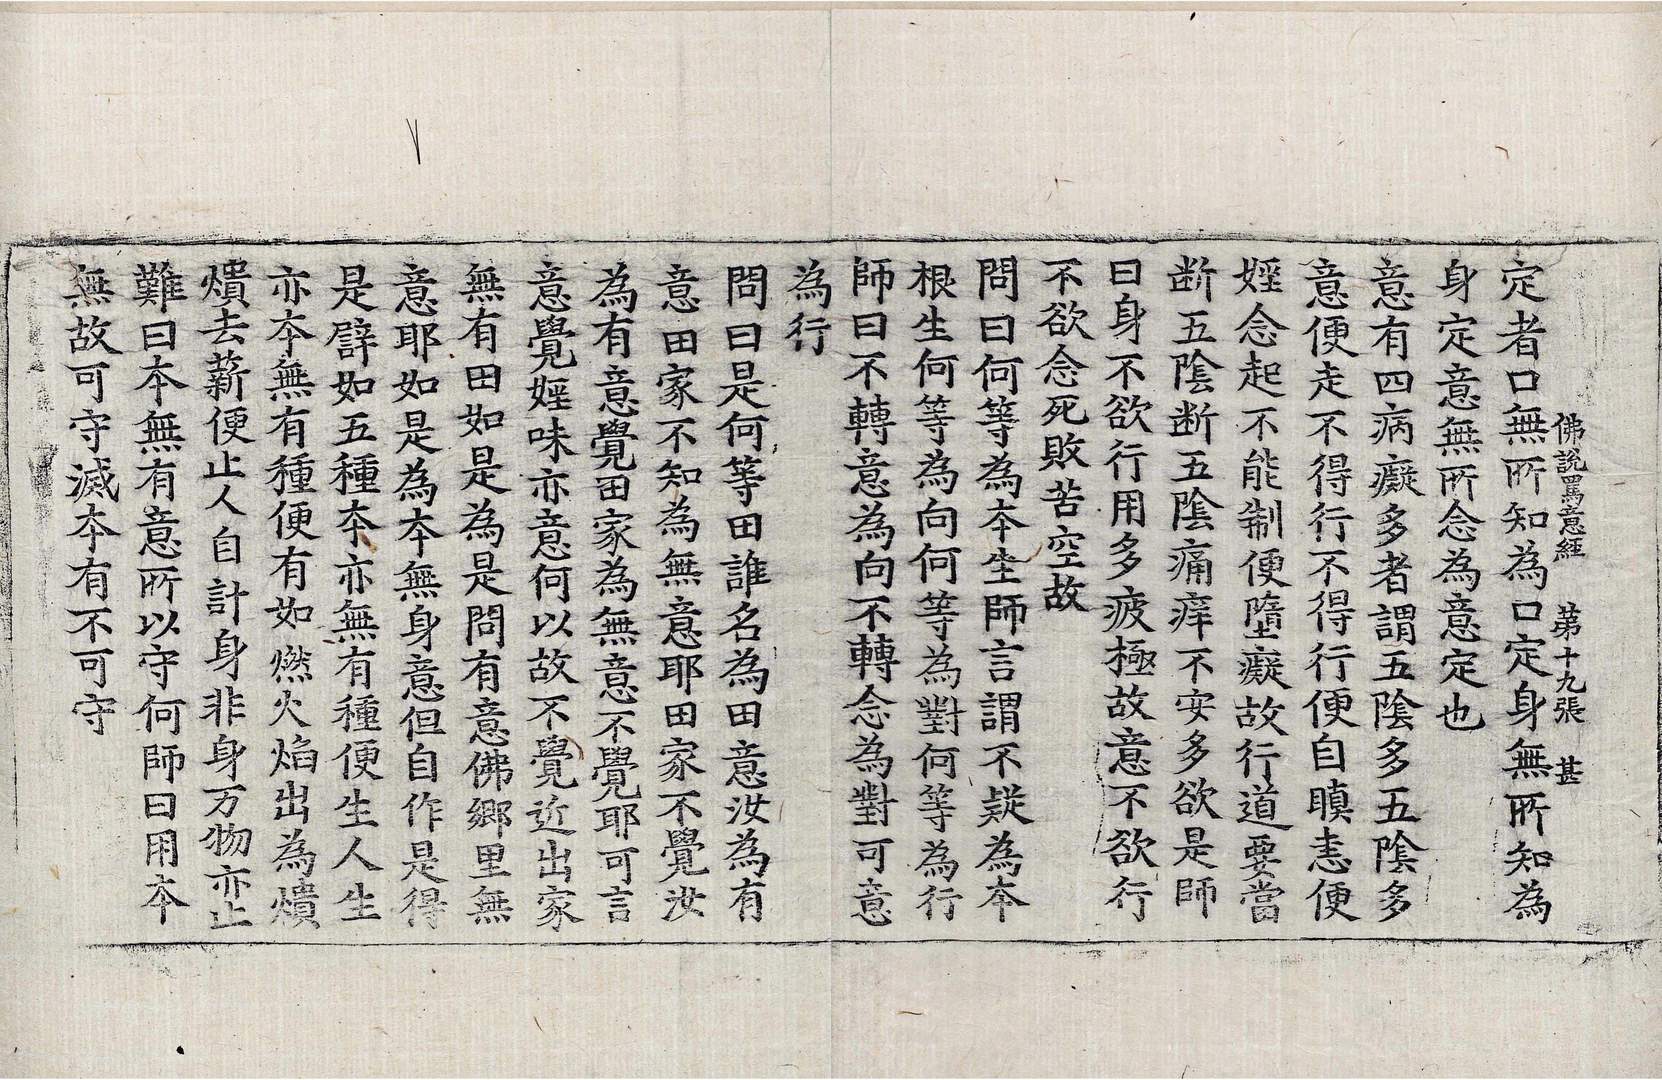 佛說罵意經 第十九張 甚
定者口無所知為口定身無所知為
身定意無所念為意定也
意有四病癡多者謂五陰多五陰多
意便走不得行不得行便自瞋恚便
婬念起不能制便墮癡故行道要當
断五陰断五陰痛痒不安多欲是師
曰身不欲行用多疲極故意不欲行
不欲念死敗苦空故
問曰何等為本生師言謂不疑為本
根生何等為向何等為對何等為行
師曰不轉意為向不轉念為對可意
為行
問曰是何等田誰名為田意汝為有
意田家不知為無意耶田家不覺汝
為有意覺田家為無意不覺耶可言
意覺婬味亦意何以故不覺近出家
無有田如是為是問有意佛鄉里無
意耶如是為本無身意但自作是得
是譬如五種本亦無有種便生人生
亦本無有種便有如燃火焰出為燌
燌去薪便止人自計身非身万物亦止
難曰本無有意所以守何師曰用本
無故可守滅本有不可守